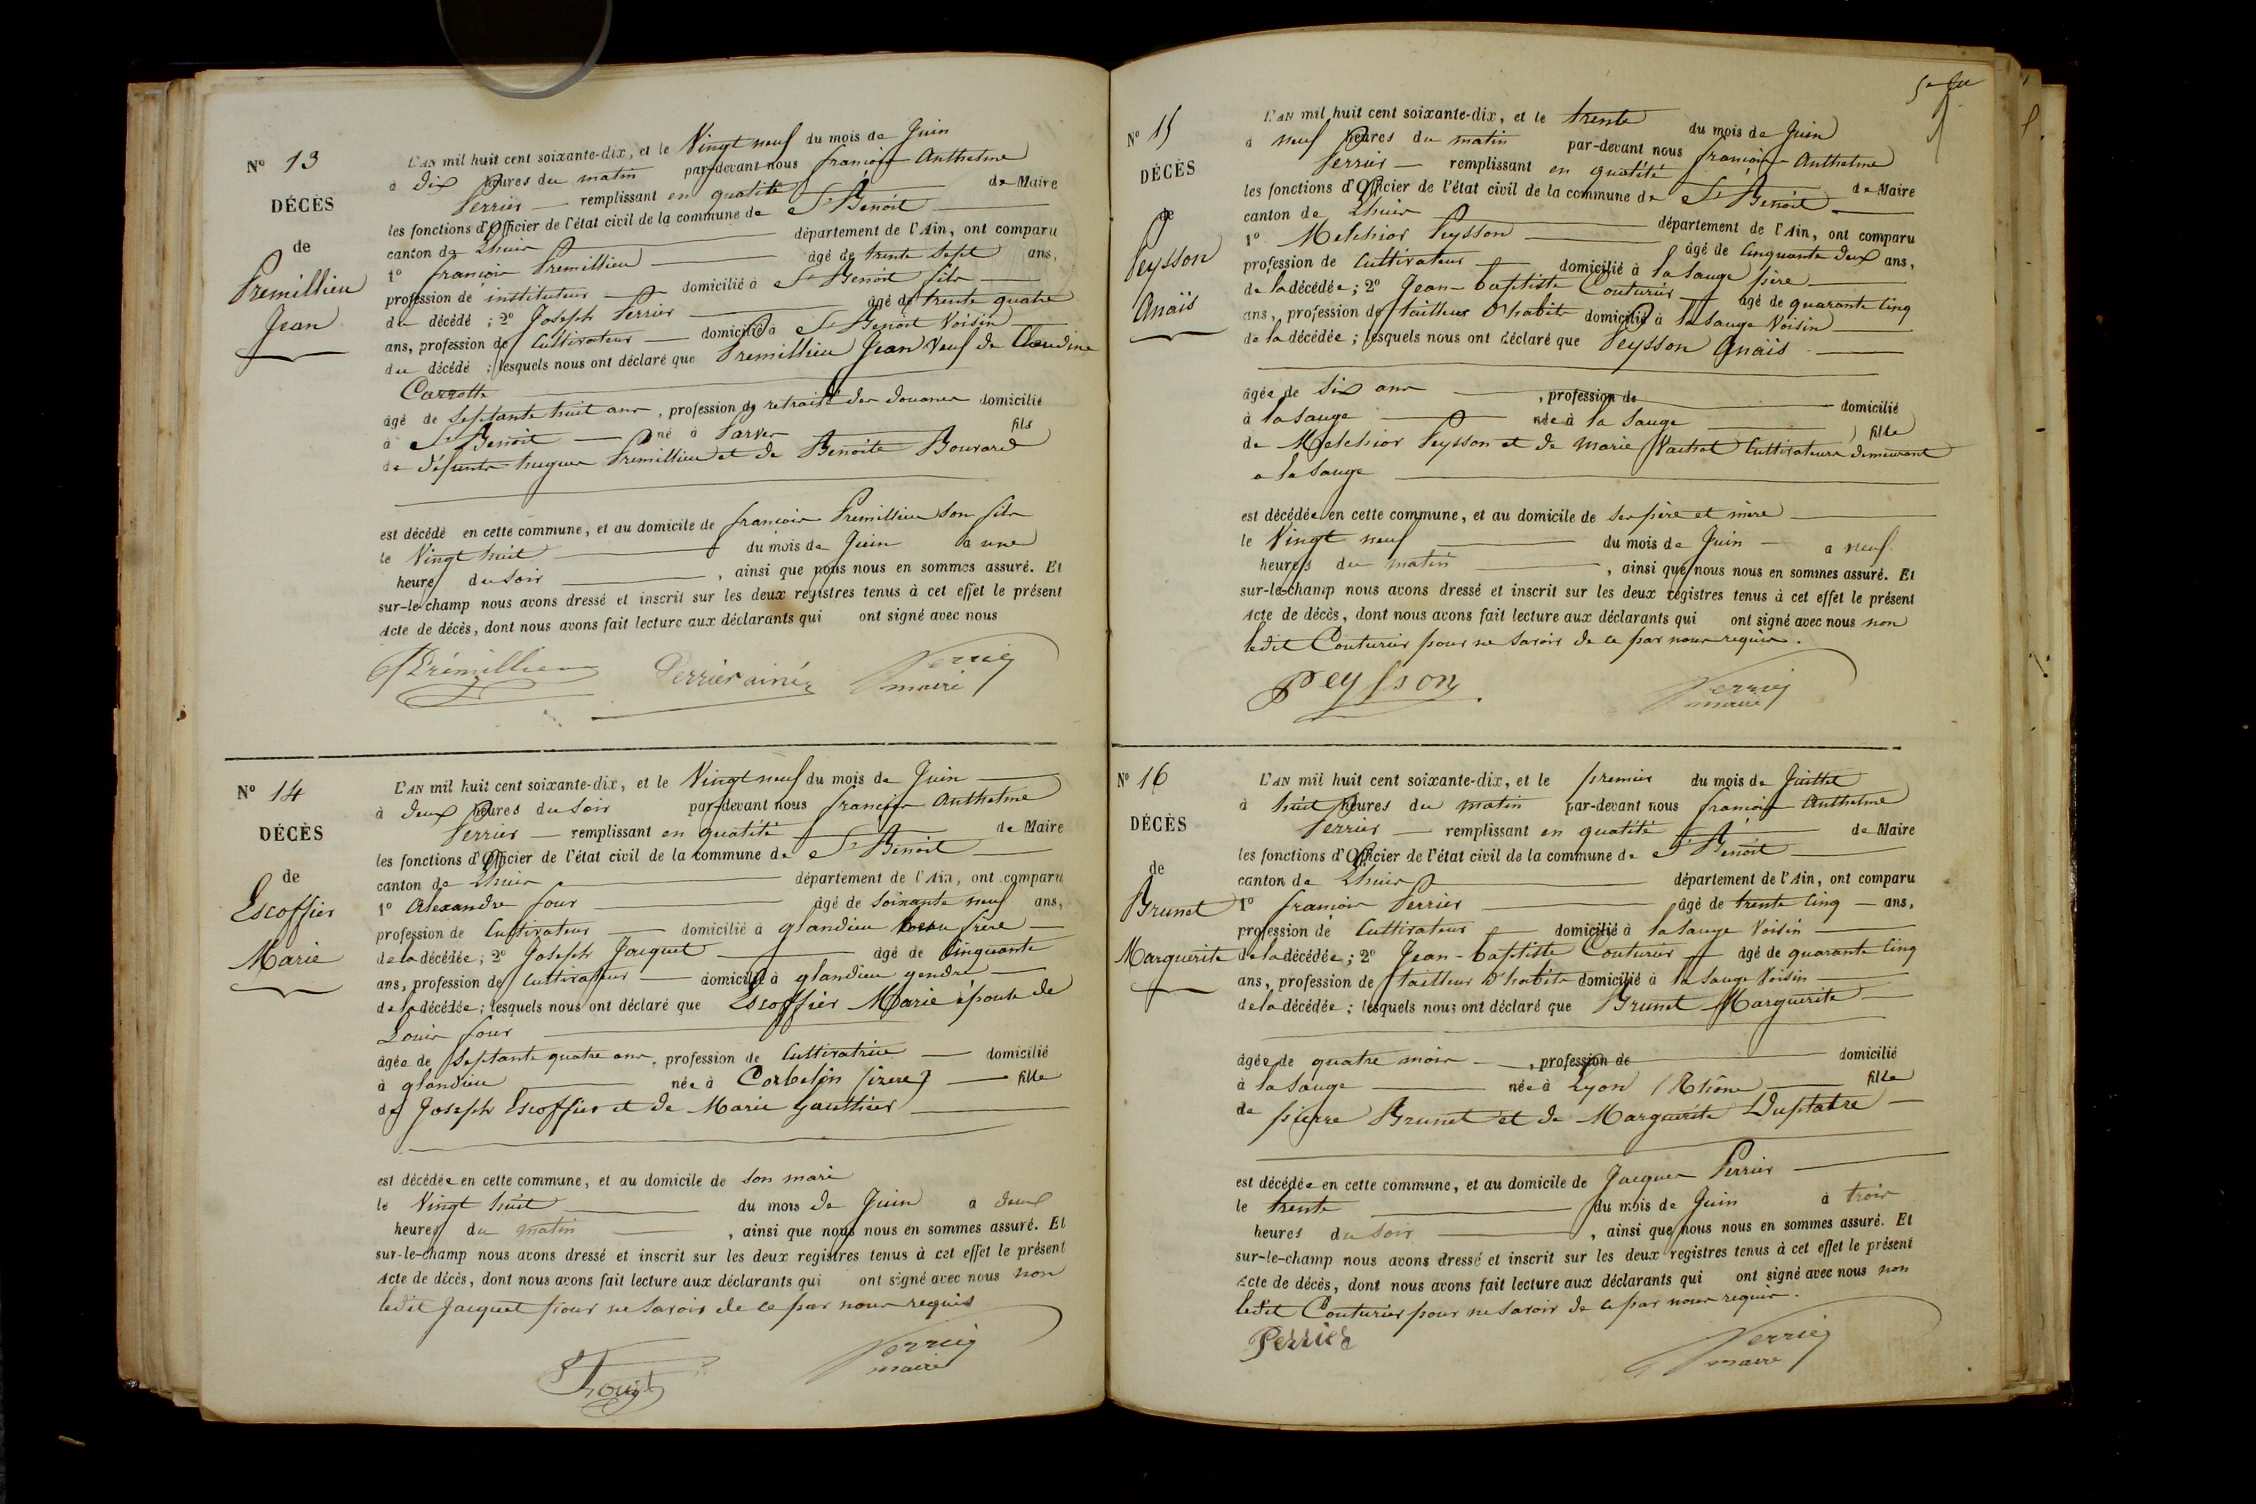 N° 13
DÉCÈS
de
Premillieu
Jean
L'AN mil huit cent soixante-dix, et le Vingt neuf du mois de Juin
à Dix heures du matin par-devant nous françois Anthelme
Perrier remplissant en qualité de Maire
les fonctions d'Officier de l'état civil de la commune de St Benoit
canton de Lhuis département de l'Ain, ont comparu
1° françois Premillieu âgé de trente sept ans,
profession de instituteur domicilié à St Benoit fils
du décédé ; 2° Joseph Perrier âgé de trente quatre
ans, profession de Cultivateur domicilié à St Benoit Voisin
du décédé ; lesquels nous ont déclaré que Premillieu Jean Veuf de Claudine
Carrotte
âgé de Septante huit ans, profession de retraité des douanes domicilié
à St Benoit né à Parves fils
de défunts hugues Premillieu et de Benoite Bouvard
est décédé en cette commune, et au domicile de françois Premillieu son fils
le Vingt huit du mois de Juin à une
heure du soir, ainsi que nous nous en sommes assuré. Et
sur-le-champ nous avons dressé et inscrit sur les deux registres tenus à cet effet le présent
Acte de décès, dont nous avons fait lecture aux déclarants qui ont signé avec nous
Prémillieu Perrier ainé Perrier
maire
N° 14
DÉCÈS
de
Escoffier
Marie
L'AN mil huit cent soixante-dix, et le Vingt neuf du mois de Juin
à deux heures du soir par-devant nous françois Anthelme
Perrier remplissant en qualité de Maire
les fonctions d'Officier de l'état civil de la commune de St Benoit
canton de Lhuis département de l'Ain, ont comparu
1° Alexandre four âgé de soixante neuf ans,
profession de Cultivateur domicilié à glandieu beau frère
de la décédée ; 2° Joseph Jacquet âgé de Cinquante
ans, profession de Cultivateur domicilié à glandieu gendre
de la décédée ; lesquels nous ont déclaré que Escoffier Marie épouse de
Louis four
âgée de Septante quatre ans, profession de Cultivatrice domicilié
à glandieu née à Corbelin (izere) fille
de Joseph Escoffier et de Marie gauthier
est décédée en cette commune, et au domicile de son mari
le Vingt huit du mois de Juin à deux
heures du matin, ainsi que nous nous en sommes assuré. Et
sur-le-champ nous avons dressé et inscrit sur les deux registres tenus à cet effet le présent
Acte de décès, dont nous avons fait lecture aux déclarants qui ont signé avec nous non
ledit Jacquet pour ne savoir de ce par nous requis
Perrier
maire
N° 15
DÉCÈS
de
Peysson
Anaïs
L'AN mil huit cent soixante-dix, et le trente du mois de Juin
à neuf heures du matin par-devant nous françois Anthelme
Perrier remplissant en qualité de Maire
les fonctions d'Officier de l'état civil de la commune de St Benoit
canton de Lhuis département de l'Ain, ont comparu
1° Melchior Peysson âgé de Cinquante deux ans,
profession de Cultivateur domicilié à la Sauge père
de la décédée ; 2° Jean-baptiste Couturier âgé de quarante cinq
ans, profession de tailleur d'habits domicilié à la Sauge Voisin
de la décédée ; lesquels nous ont déclaré que Peysson Anaïs
âgée de six ans, profession de domicilié
à la Sauge née à la Sauge fille
de Melchior Peysson et de Marie Vachat Cultivateurs demeurant
a la Sauge
est décédée en cette commune, et au domicile de ses père et mère
le Vingt neuf du mois de Juin à neuf
heures du matin, ainsi que nous nous en sommes assuré. Et
sur-le-champ nous avons dressé et inscrit sur les deux registres tenus à cet effet le présent
Acte de décès, dont nous avons fait lecture aux déclarants qui ont signé avec nous non
ledit Couturier pour ne savoir de ce par nous requis.
Peysson Perrier
maire
N° 16
DÉCÈS
de
Brunet
Marguerite
L'AN mil huit cent soixante-dix, et le premier du mois de Juillet
à huit heures du matin par-devant nous françois Anthelme
Perrier remplissant en qualité de Maire
les fonctions d'Officier de l'état civil de la commune de St Benoit
canton de Lhuis département de l'Ain, ont comparu
1° françois Perrier âgé de trente cinq ans,
profession de Cultivateur domicilié à la Sauge Voisin
de la décédée ; 2° Jean-baptiste Couturier âgé de quarante cinq
ans, profession de tailleur d'habits domicilié à la Sauge Voisin
de la décédée ; lesquels nous ont déclaré que Brunet Marguerite
âgée de quatre mois, profession de domicilié
à la Sauge née à Lyon (Rhône) fille
de pierre Brunet et de Marguerite Duplatre
est décédée en cette commune, et au domicile de Jacques Perrier
le trente du mois de Juin à trois
heures du soir, ainsi que nous nous en sommes assuré. Et
sur-le-champ nous avons dressé et inscrit sur les deux registres tenus à cet effet le présent
Acte de décès, dont nous avons fait lecture aux déclarants qui ont signé avec nous non
ledit Couturier pour ne savoir de ce par nous requis.
Perrier Perrier
maire